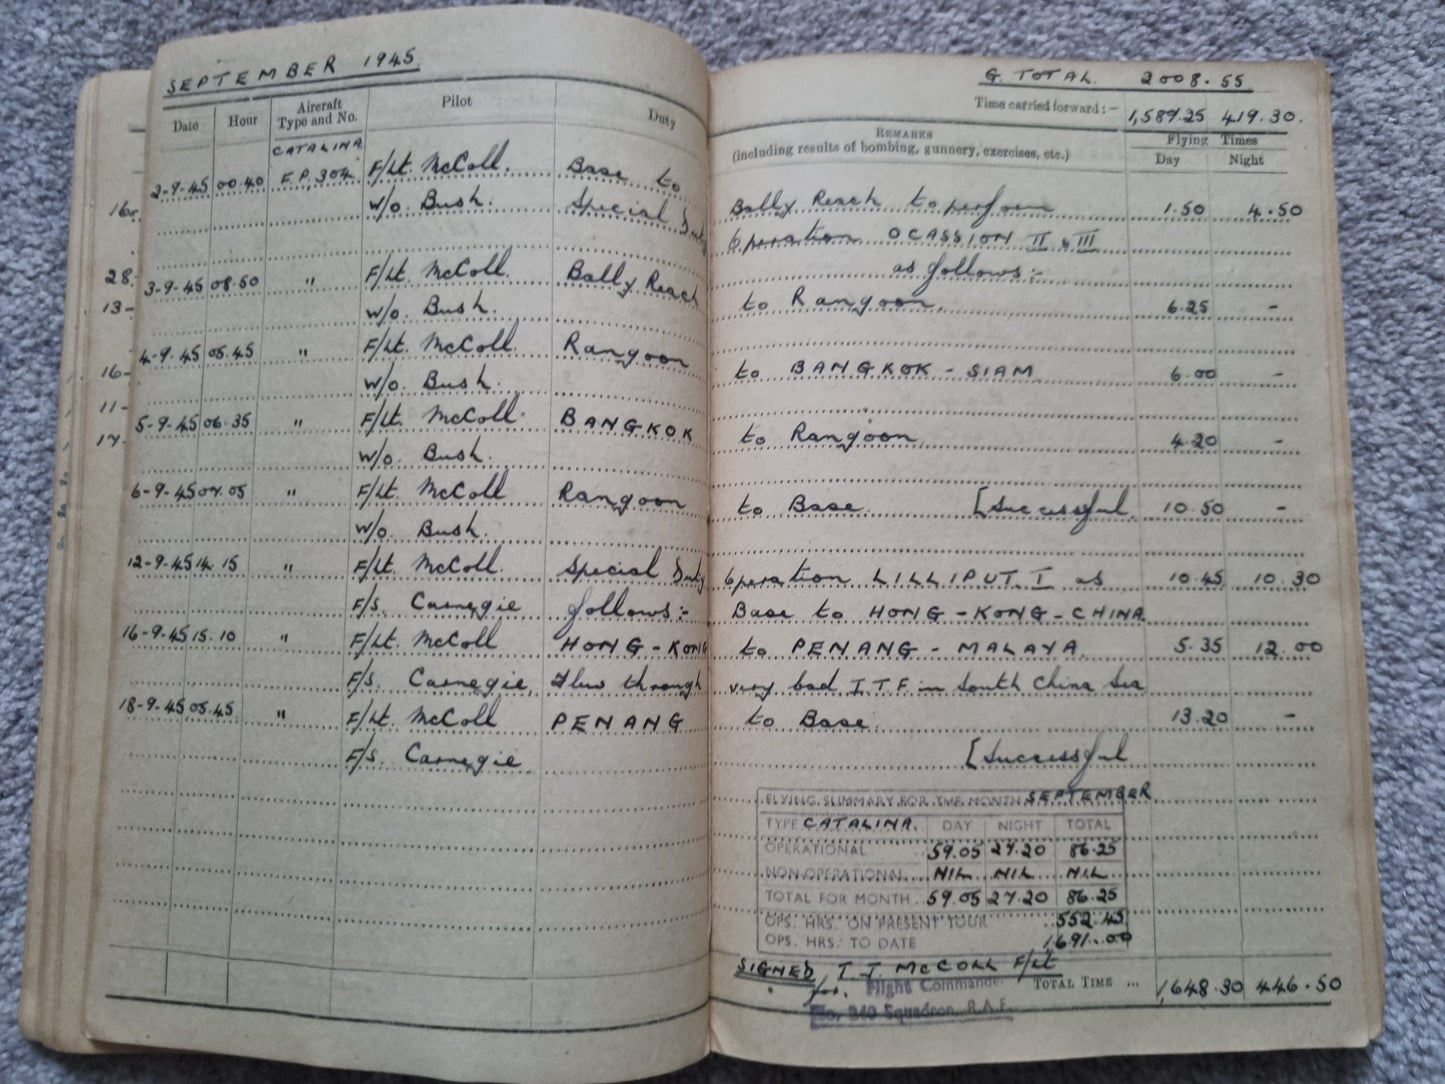 SEPTEMBER 1945
G. TOTAL. 2008.55
Time carried forward:— 1,589.25 419.30.
Date Hour Aircraft Type and No. Pilot Duty REMARKS (including results of bombing, gunnery, exercises, etc.) Flying Times Day Night
CATALINA
2-9-45 00.40 F.P. 304 F/Lt. McColl. Base to Bally Reach to perform 1.50 4.50
W/O. Bush. Special Duty Operation OCASSION II & III
as follows:-
3-9-45 08.50 " F/Lt. McColl. Bally Reach to Rangoon. 6.25 -
W/O. Bush.
4-9-45 05.45 " F/Lt. McColl Rangoon to BANGKOK - SIAM 6.00 -
W/O. Bush.
5-9-45 06.35 " F/Lt. McColl. BANGKOK to Rangoon 4.20 -
W/O. Bush.
6-9-45 07.05 " F/Lt. McColl Rangoon to Base. [Successful. 10.50 -
W/O. Bush.
12-9-45 14.15 " F/Lt. McColl. Special Duty Operation LILLIPUT I as 10.45 10.30
F/S. Carnegie follows:- Base to HONG-KONG-CHINA
16-9-45 15.10 " F/Lt. McColl HONG-KONG to PENANG - MALAYA. 5.35 12.00
F/S. Carnegie. Flew through very bad I.T.F in South China Sea
18-9-45 05.45 " F/Lt. McColl PENANG to Base. 13.20 -
F/S. Carnegie [Successful
FLYING SUMMARY FOR THE MONTH SEPTEMBER
TYPE CATALINA. DAY NIGHT TOTAL
OPERATIONAL 59.05 27.20 86.25
NON OPERATIONAL NIL NIL NIL
TOTAL FOR MONTH 59.05 27.20 86.25
OPS. HRS. ON PRESENT TOUR 552.45
OPS. HRS. TO DATE 1,691.00
SIGNED T J. McCOLL F/Lt
for. Flight Commander
TOTAL TIME ... 1,648.30 446.50
No. 240 Squadron, R.A.F.
16
28
13-
16-
11-
17